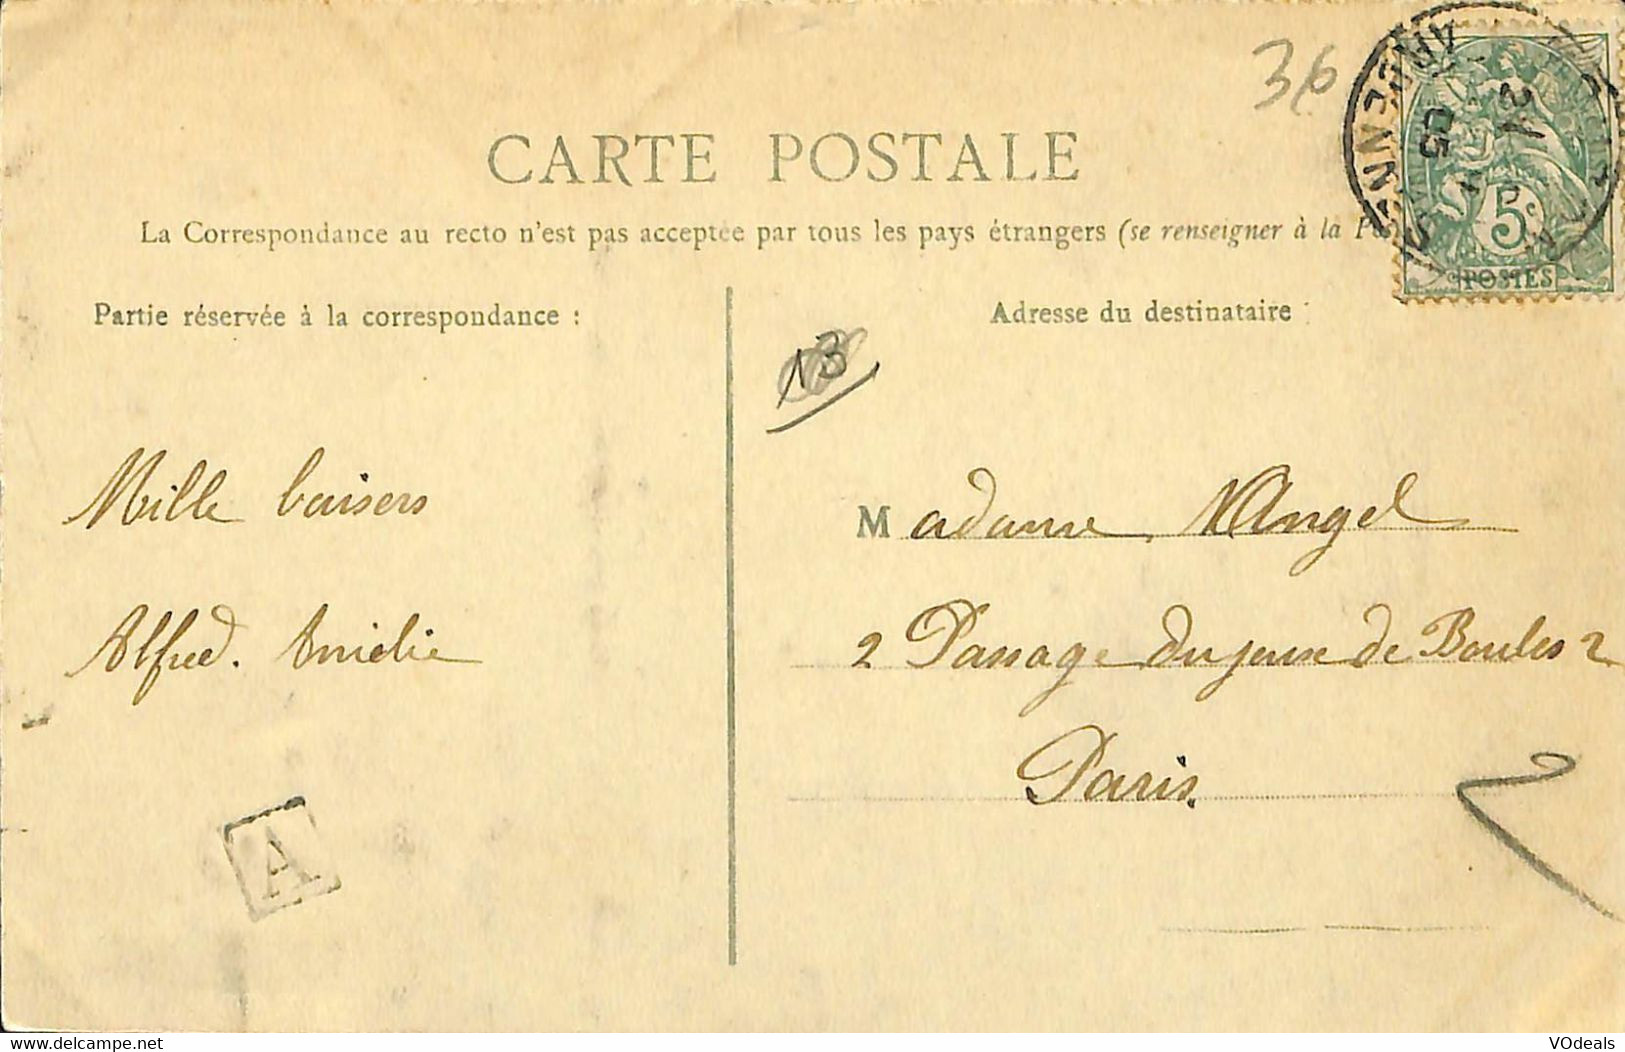 36
CARTE POSTALE
La Correspondance au recto n'est pas acceptée par tous les pays étrangers (se renseigner à la
ARDENNES
05
5
POSTES
Partie réservée à la correspondance :
Adresse du destinataire :
13
Mille baisers
Alfred. Amélie
A
Madame Angel
2 Passage du jeux de Boules 2
Paris.
MC
VOdeals